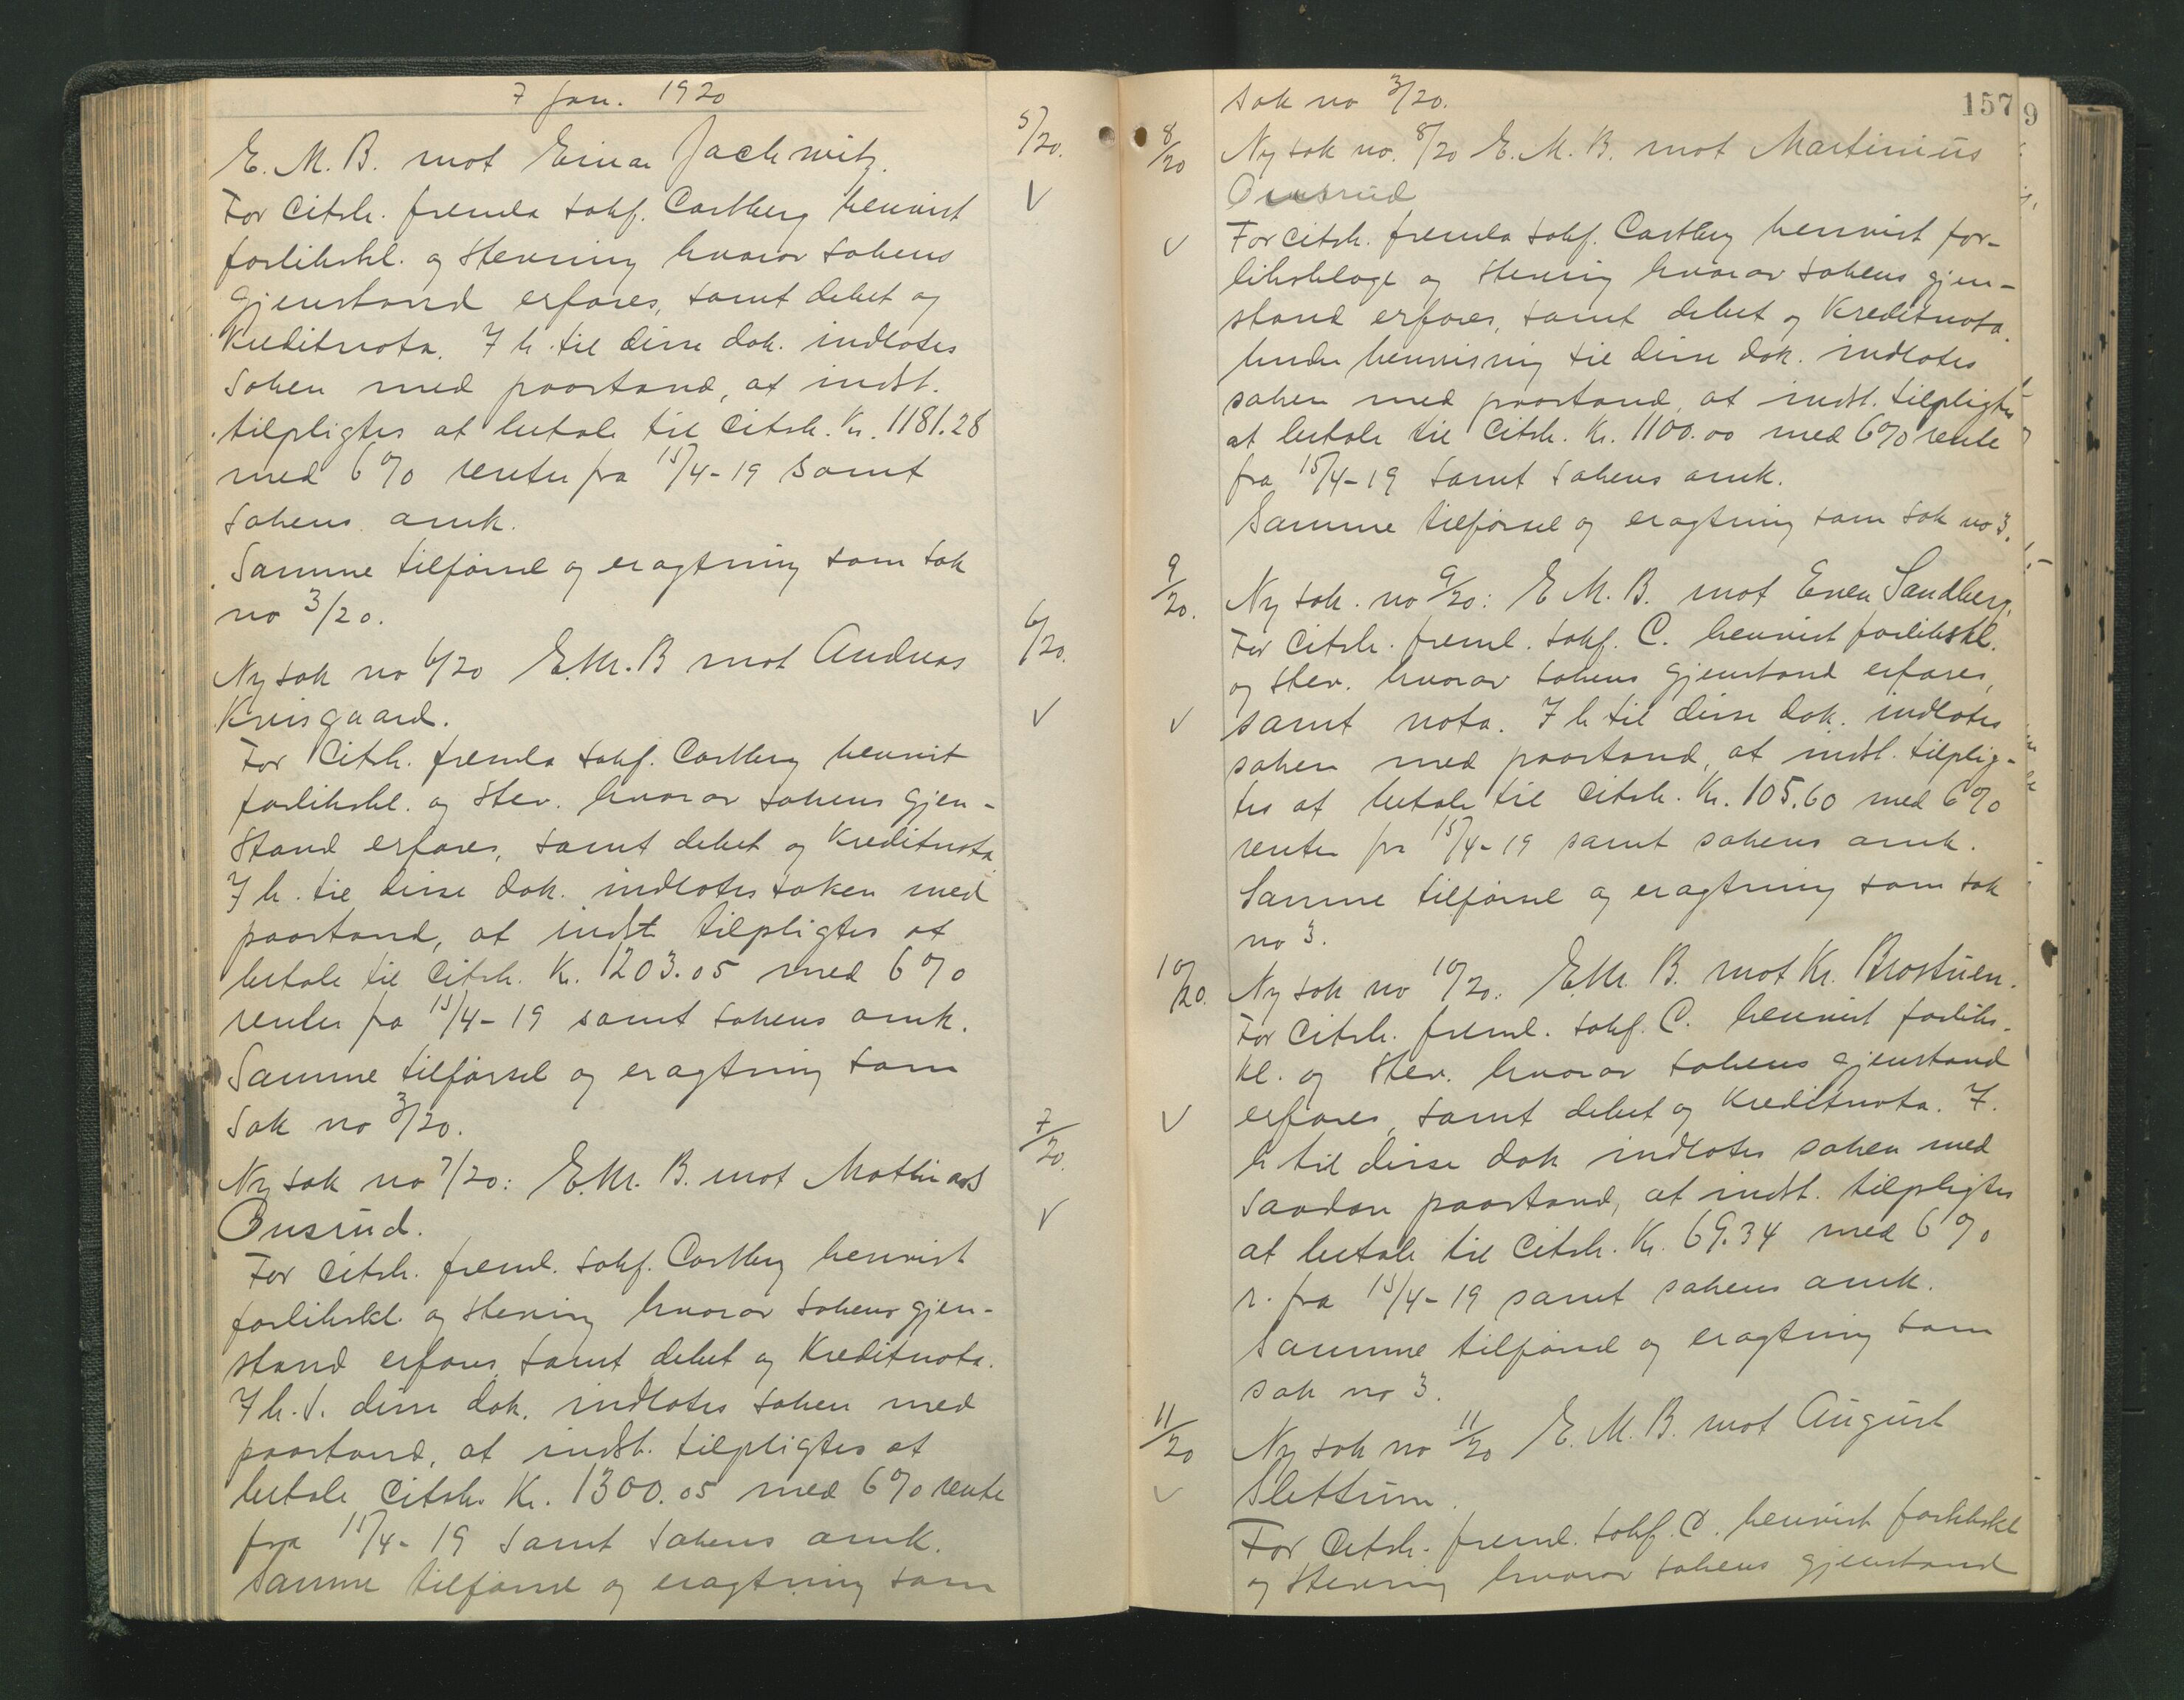 7 Jan. 1920
5/20.
E. M. B. mot Einar Jachwitz.
For citsk. fremla sakf. Castberg henvist
forlikskl. og stevning hvorav sakens
gjenstand erfares, samt debet og
Kreditnota. I h. til disse dok. indlates
saken med paastand, at indst.
tilpligtes at betale til citsk. Kr. 1181.28
med 6% renter fra 15/4-19 samt
sakens omk.
Samme tilførsel og eragtning som sak
no 3/20.
6/20.
Ny sak no 6/20 E. M. B mot Andreas
Krisgaard.
For Citsk. fremla sakf. Castberg henvist
forlikskl. og stev. hvorav sakens gjen-
stand erfares, samt debet og Kreditnota
I h. til disse dok. indlates saken med
paastand, at indst tilpligtes at
betale til citsk. Kr. 1203.05 med 6%
renter fra 15/4-19 samt sakens omk.
Samme tilførsel og eragtning som
Sak no 3/20.
7/20.
Ny sak no 7/20: E. M. B. mot Mathias
Onsrud.
For citsk. freml. sakf. Castberg henvist
forlikskl. og stevning hvorav sakens gjen-
stand erfares, samt debet og Kreditnota.
I h. t. disse dok. indlates saken med
paastand, at indst. tilpligtes at
betale citsk. Kr. 1300.05 med 6% rente
fra 15/4-19 samt sakens omk.
Samme tilførsel og eragtning som
157
9
sak no 3/20.
8/20
Ny sak no. 8/20 E. M. B. mot Martinius
Onsrud
For citsk. fremla sakf. Castberg henvist for-
liksklage og stevning hvorav sakens gjen-
stand erfares, samt debet og Kreditnota.
Under henvisning til disse dok. indlates
saken med paastand, at indst. tilpligtes
at betale til citsk. Kr. 1100.00 med 6% rente
fra 15/4-19 samt sakens omk.
Samme tilførsel og eragtning som sak no 3.
9/20.
Ny sak. no 9/20: E. M. B. mot Even Sandberg.
For citsk. freml. sakf. C. henvist forlikskl.
og stev. hvorav sakens gjenstand erfares,
samt nota. I h til disse dok. indlates
saken med paastand, at indst. tilplig-
tes at betale til citsk. Kr. 105.60 med 6%
renter fra 15/4-19 samt sakens omk.
Samme tilførsel og eragtning som sak
no 3.
10/20.
Ny sak no 10/20: E. M. B. mot Kr. Brostuen.
For citsk. freml. sakf. C. henvist forliks-
kl. og stev. hvorav sakens gjenstand
erfares, samt debet og Kreditnota. I.
h til disse dok indlates saken med
saadan paastand, at indst. tilpligtes
at betale til citsk. Kr. 69.34 med 6%
r. fra 15/4-19 samt sakens omk.
Samme tilførsel og eragtning som
sak no 3.
11/20
Ny sak no 11/20 E. M. B. mot August
Slettum.
For Citsk. freml. sakf. C. henvist forlikskl
og stevning hvorav sakens gjenstand